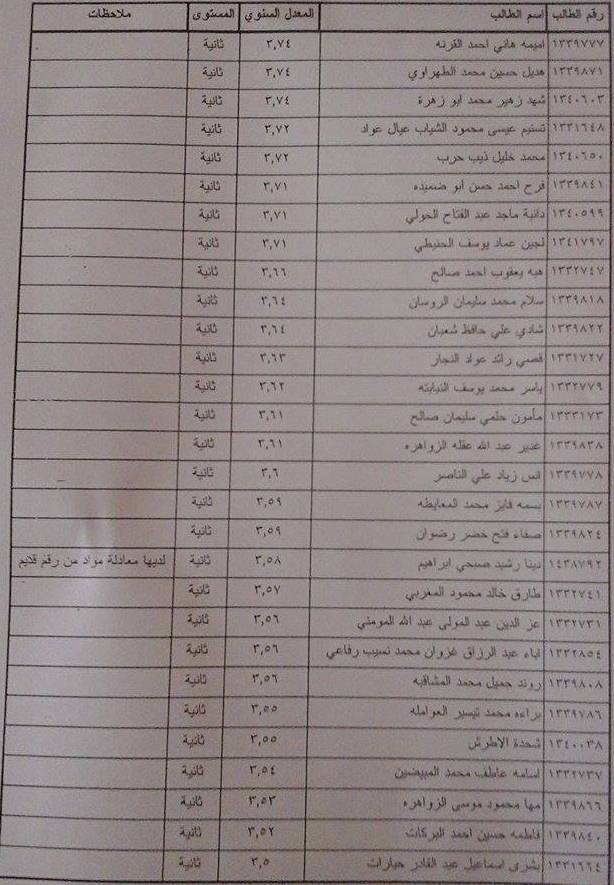 رقم الطالب اسم الطالب المعدل السنوي المستوى ملاحظات
١٣٣٩٧٧٧ اميمه هاني احمد القرنه ٣,٧٤ ثانية
١٣٣٩٨٧١ هديل حسين محمد الطهراوي ٣,٧٤ ثانية
١٣٤٠٦٠٣ شهد زهير محمد ابو زهرة ٣,٧٤ ثانية
١٣٣١٦٤٨ تسنيم عيسى محمود الشياب عيال عواد ٣,٧٢ ثانية
١٣٤٠٦٥٠ محمد خليل ذيب حرب ٣,٧٢ ثانية
١٣٣٩٨٤١ فرح احمد حسن ابو ضميده ٣,٧١ ثانية
١٣٤٠٥٩٩ دانية ماجد عبد الفتاح الخولي ٣,٧١ ثانية
١٣٤١٧٩٧ لجين عماد يوسف الحنيطي ٣,٧١ ثانية
١٣٣٢٧٤٧ هبه يعقوب احمد صالح ٣,٦٦ ثانية
١٣٣٩٨١٨ سلام محمد سليمان الروسان ٣,٦٤ ثانية
١٣٣٩٨٢٢ شادي علي حافظ شعبان ٣,٦٤ ثانية
١٣٣١٧٢٧ قصي رائد عواد النجار ٣,٦٣ ثانية
١٣٣٢٧٧٩ ياسر محمد يوسف النبابته ٣,٦٢ ثانية
١٣٣٣١٧٣ مأمون حلمي سليمان صالح ٣,٦١ ثانية
١٣٣٩٨٣٨ غدير عبد الله عقله الزواهره ٣,٦١ ثانية
١٣٣٩٧٧٨ انس زياد علي الناصر ٣,٦ ثانية
١٣٣٩٧٨٧ بسمه فايز محمد المعايطه ٣,٥٩ ثانية
١٣٣٩٨٢٤ صفاء فتح خضر رضوان ٣,٥٩ ثانية
١٤٣٨٧٩٢ دينا رشيد صبحي ابراهيم ٣,٥٨ ثانية لديها معادلة مواد من رقم قديم
١٣٣٢٧٤١ طارق خالد محمود المغربي ٣,٥٧ ثانية
١٣٣٢٧٣١ عز الدين عبد المولى عبد الله المومني ٣,٥٦ ثانية
١٣٣٢٨٥٤ اباء عبد الرزاق غزوان محمد نسيب رفاعي ٣,٥٦ ثانية
١٣٣٩٨٠٨ روند جميل محمد المشاقبه ٣,٥٦ ثانية
١٣٣٩٧٨٦ براءه محمد تيسير العوامله ٣,٥٥ ثانية
١٣٤٠٠٣٨ شحدة الاطرش ٣,٥٥ ثانية
١٣٣٢٧٣٧ اسامه عاطف محمد المبيضين ٣,٥٤ ثانية
١٣٣٩٨٦٦ مها محمود موسى الزواهره ٣,٥٣ ثانية
١٣٣٩٨٤٠ فاطمه حسين احمد البركات ٣,٥٢ ثانية
١٣٣١٦٦٤ بشرى اسماعيل عبد القادر حيارات ٣,٥ ثانية